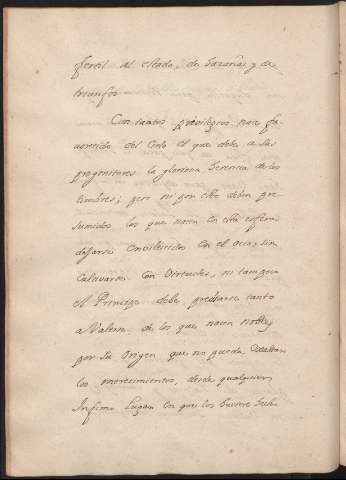 fertil al estado, de hazañas, y de
triunfos
Con tantos privilegios nace fa-
vorecido del Cielo el que debe a sus
progenitores la gloriosa herencia de los
timbres; pero ni por esto deben pre-
sumidos los que nacen en esta esfera
dejarse envilecidos con el ocio, sin
cultivarse con Virtudes, ni tampoco
el Principe debe prendarse tanto
a Valerse de los que nacen nobles
por su Origen que no pueda exaltar
los merecimientos, desde qualquiera
Infimo Lugar en que los huviere